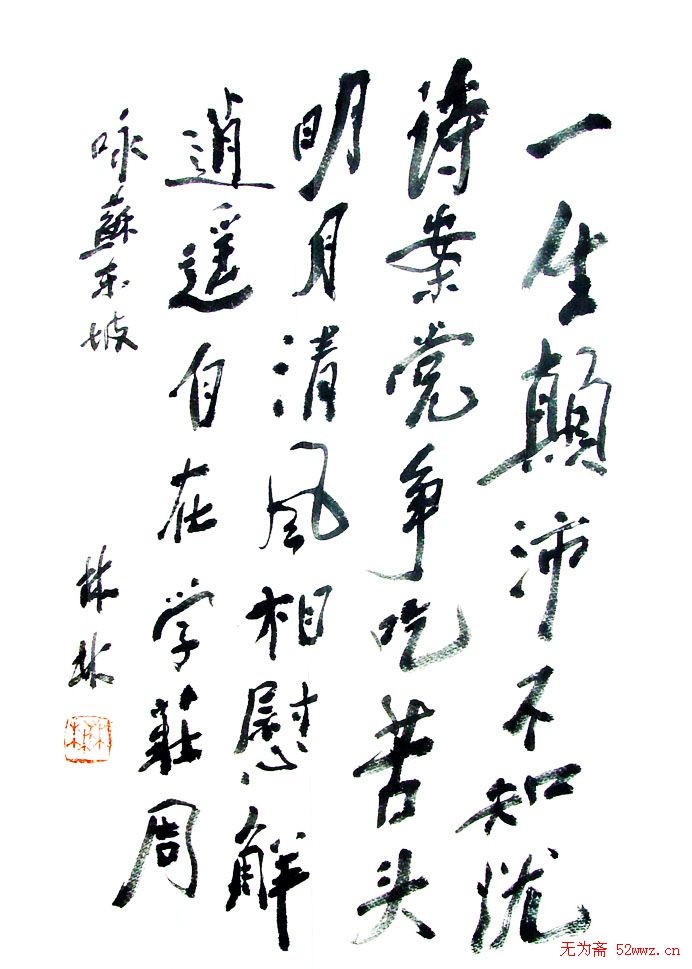 一生顛沛不知忧
诗案党争吃苦头
明月清风相慰解
逍遥自在学莊周
咏蘇东坡
林林
林林
无为斋 52wwz.cn